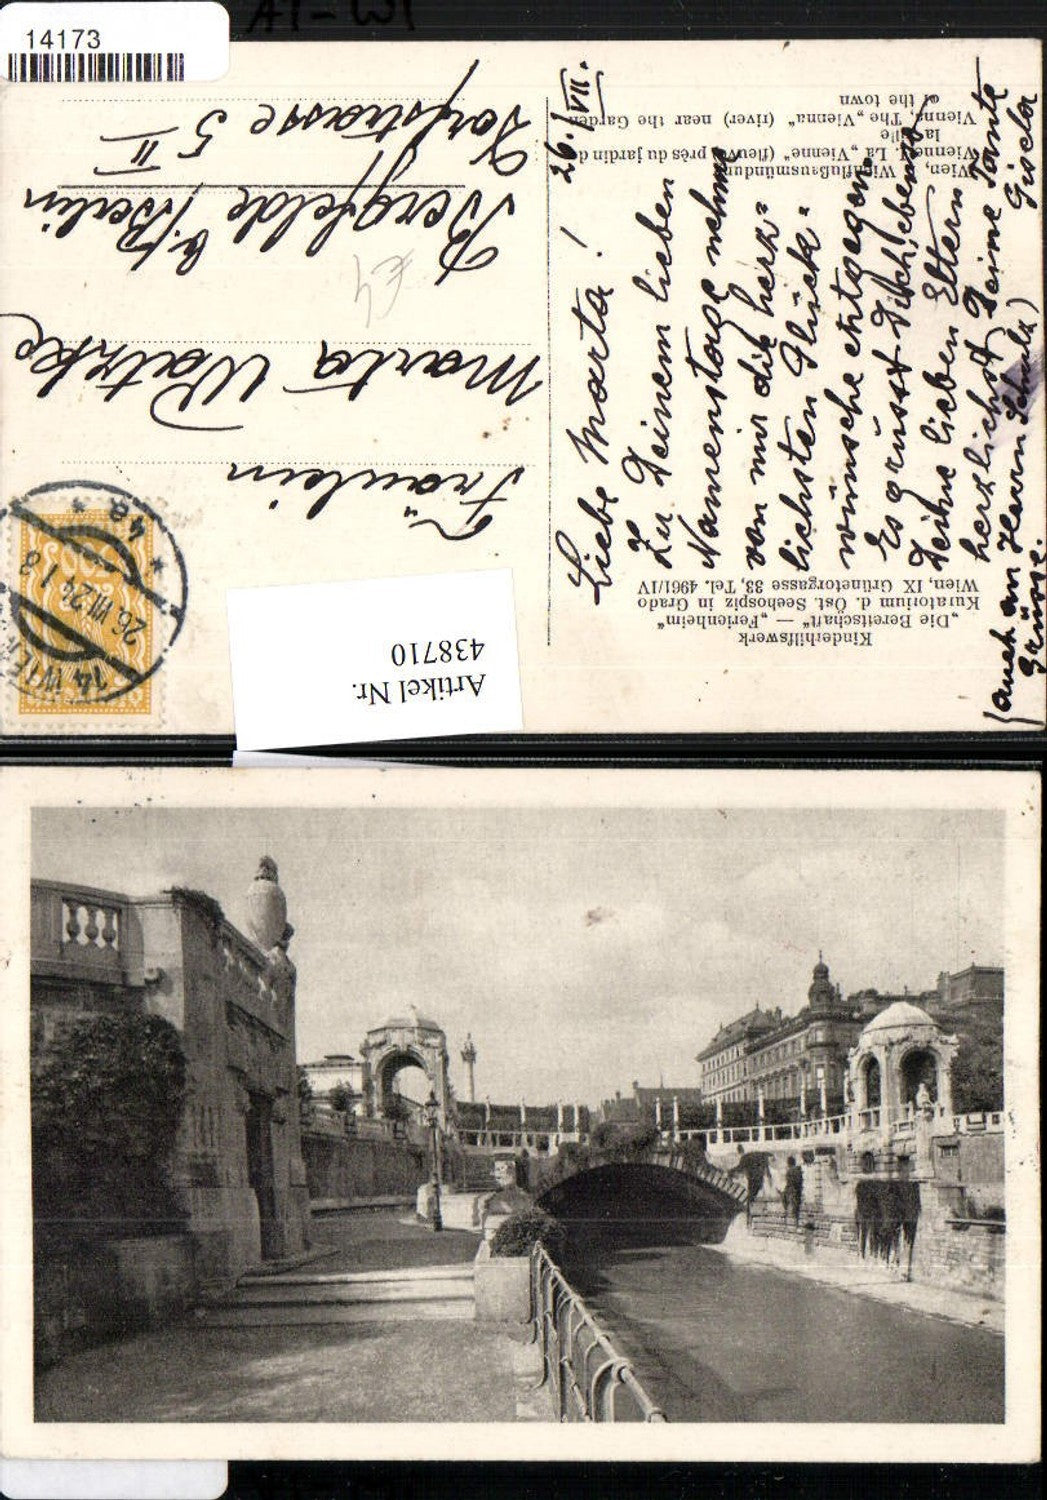 14173
26./VII.
Liebe Marta!
Zu Deinem lieben
Namenstage nehme
von mir die herz=
lichsten Glück=
wünsche entgegen.
Es grüsst Dich, ebenso
Deine lieben Eltern
herzlichst Deine Tante
Gisela
(auch an Herrn Schulz)
Grüsse.
Fräulein
Marta Watzke
Bergfelde b/Berlin
Dorfstrasse 5
II
€4
Wien, Wienflußausmündung
Vienne, La „Vienne" (fleuve) près du jardin de
la ville
Vienna, The „Vienna" (river) near the Garden
of the town
Kinderhilfswerk
„Die Bereitschaft" — „Ferienheim"
Kuratorium d. Öst. Seehospiz in Grado
Wien, IX Grünetorgasse 33, Tel. 4961/IV
14 WIEN
26.VII.24 18
* 4e *
Artikel Nr.
438710